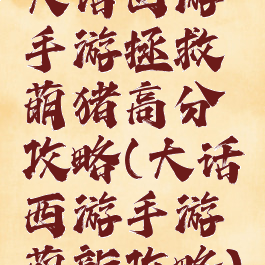 大话西游
手游拯救
萌猪高分
攻略(大话
西游手游
萌新攻略)